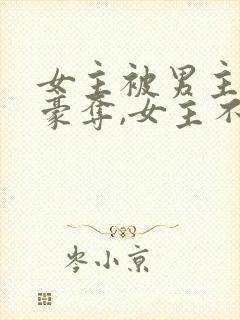 女主被男主
豪夺,女主不
岑小京